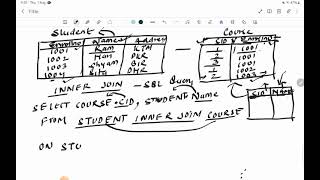 Student
Course
Enrollno Names Address
1001 Ram KTM
1002 Hari PKR
1003 Shyam BIR
1004 Sita DHR
CID Enrollno
1 1001
1001
1002
1003
INNER JOIN – SQL Query
SID Name
SELECT COURSE.CID, STUDENT Name
FROM STUDENT INNER JOIN COURSE
ON STU